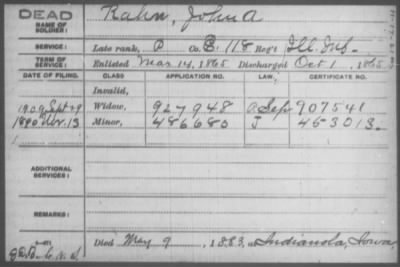 DEAD
NAME OF SOLDIER: Rahn, John A
SERVICE: Late rank, P Co. B, 118 Reg't Ill. Inf.
TERM OF SERVICE: Enlisted Mar 14, 1865 Discharged Oct 1, 1865
DATE OF FILING. CLASS. APPLICATION NO. LAW. CERTIFICATE NO.
Invalid,
1909 Sept 29 Widow, 927948 907541
1890 Nov. 13 Minor, 486680 J 453013.
ADDITIONAL SERVICES:
REMARKS:
Died May 9, 1883, at Indianola, Iowa.